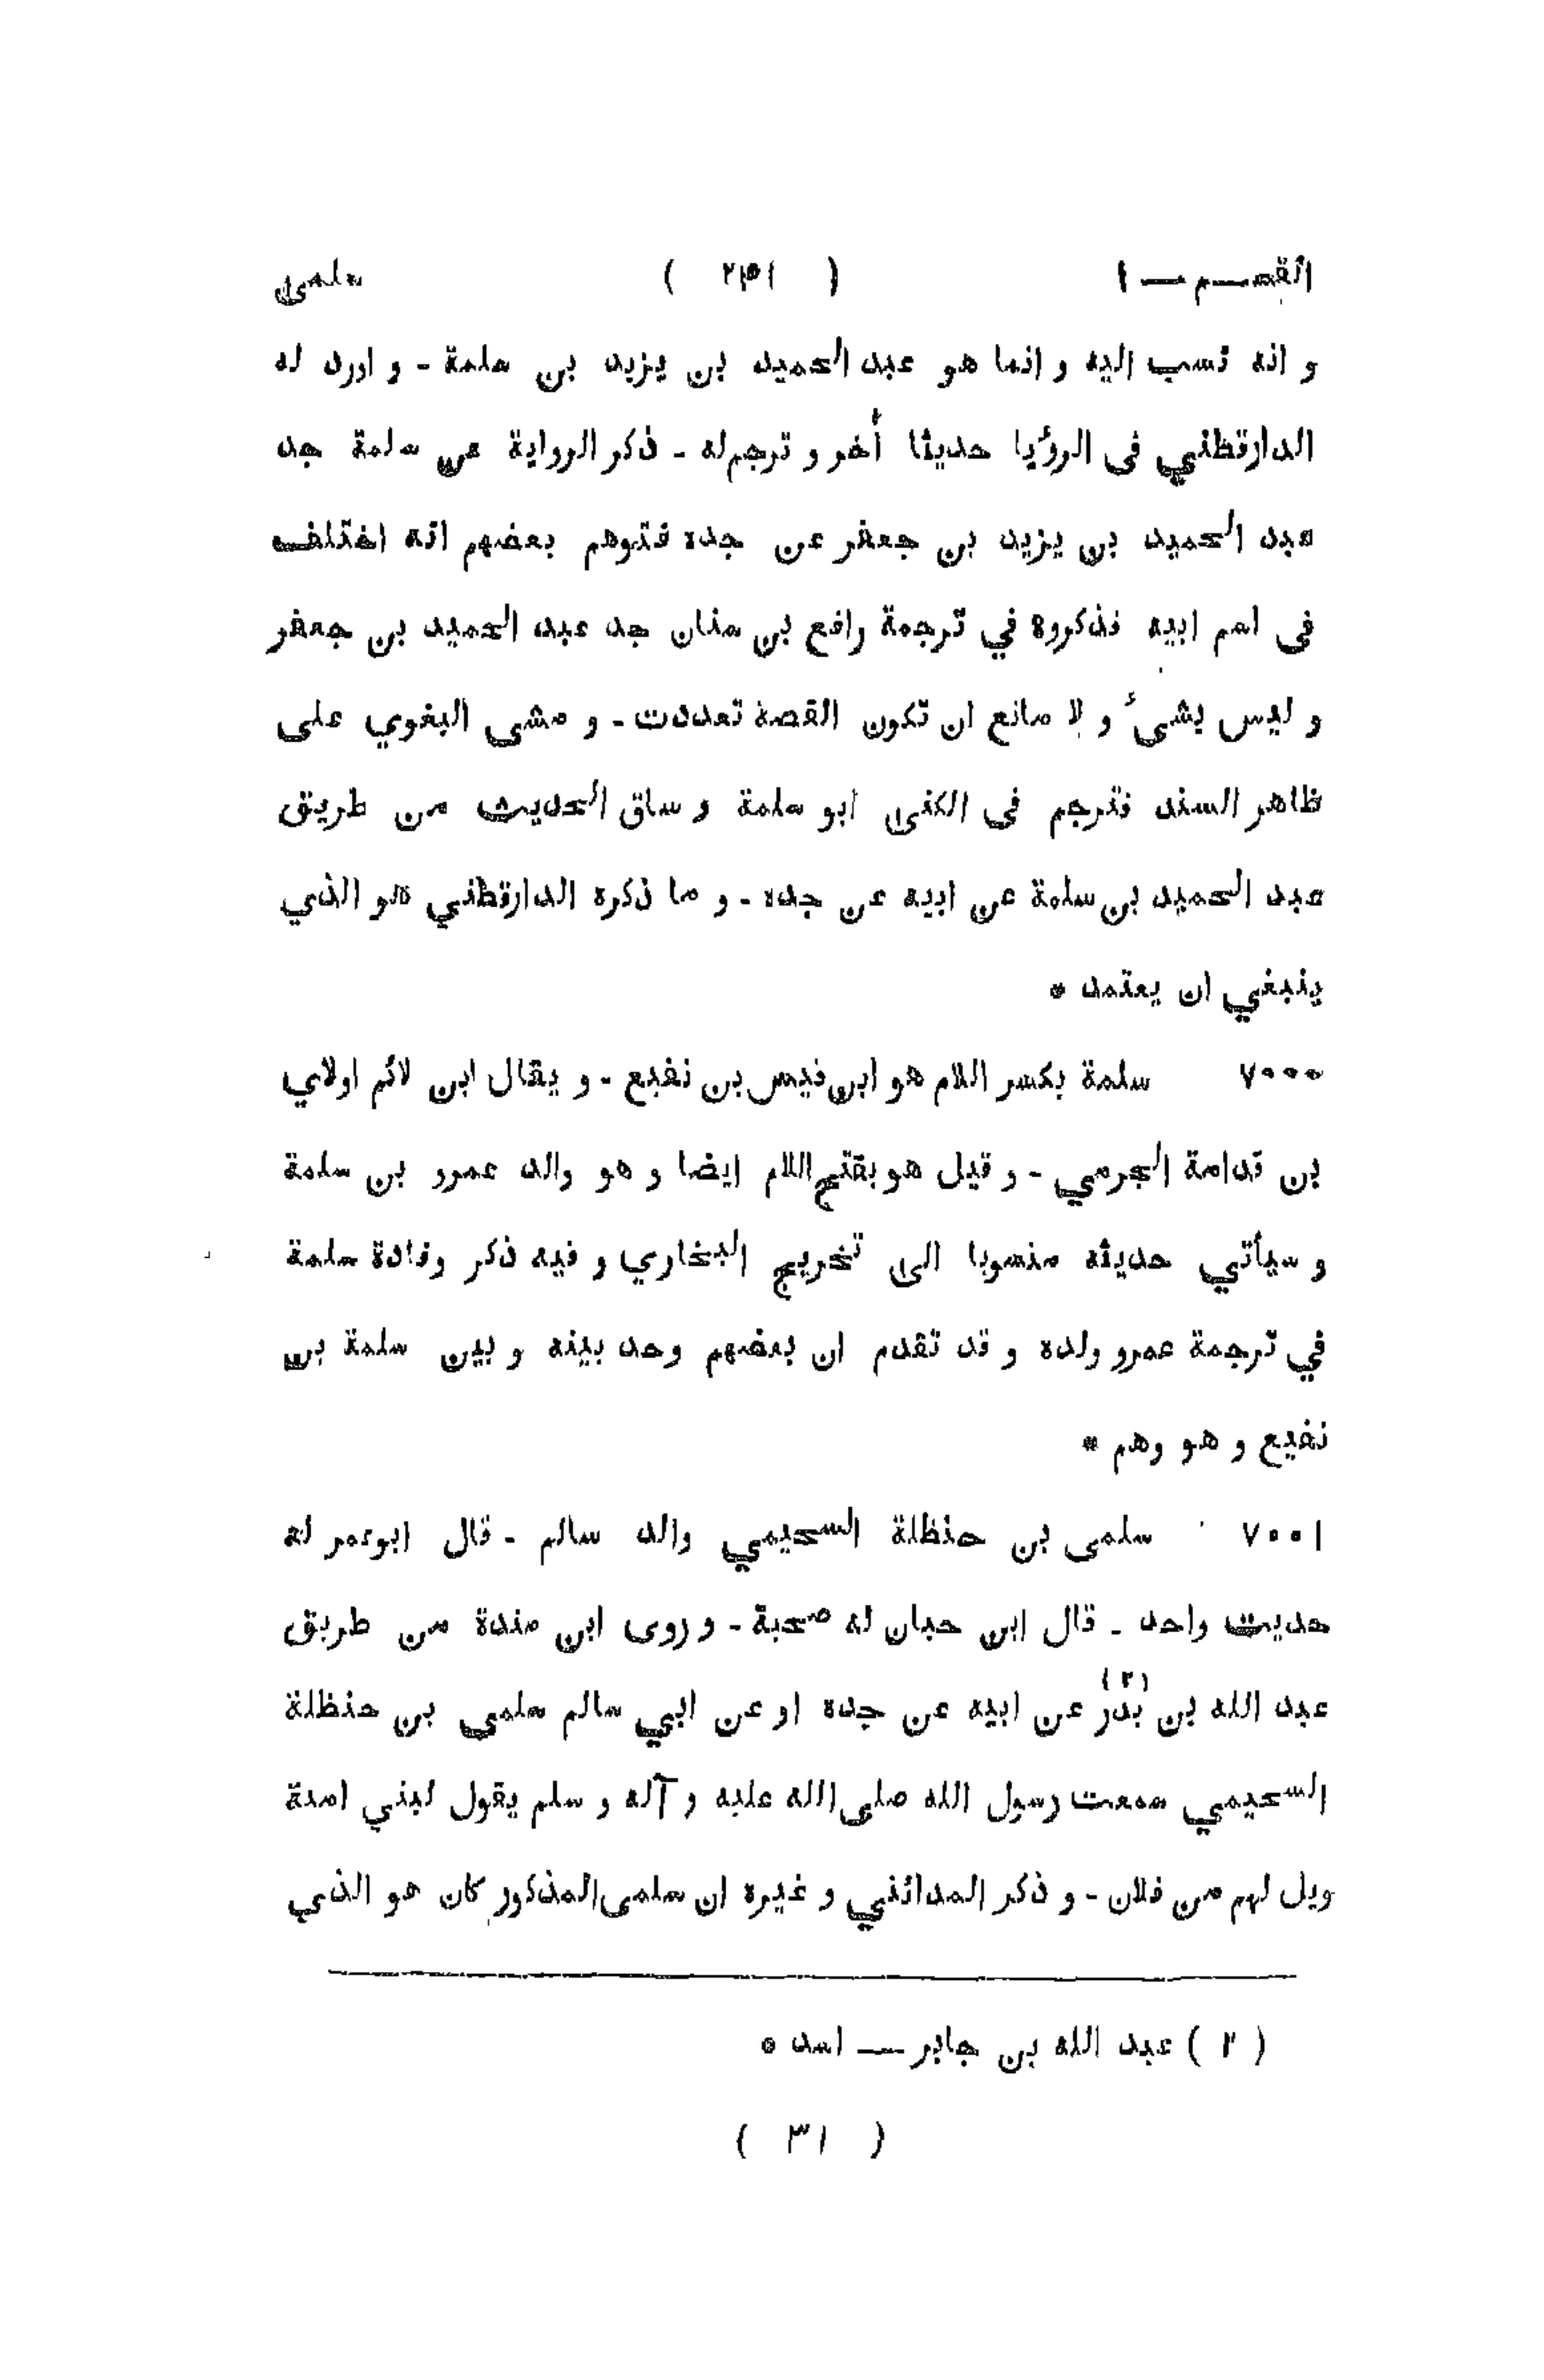 القسم — ١ ( ٢٤١ ) سلمى
و انه نسب اليه و انما هو عبد الحميد بن يزيد بن سلمة - و اورد له
الدارقطني فى الرؤيا حديثا أخر و ترجم له - ذكر الرواية عن سلمة جد
عبد الحميد بن يزيد بن جعفر عن جده فتوهم بعضهم انه اختلف
فى اسم ابيه فذكروه في ترجمة رافع بن سنان جد عبد الحميد بن جعفر
و ليس بشىء و لا مانع ان تكون القصة تعددت - و مشى البغوي على
ظاهر السند فترجم فى الكنى ابو سلمة و ساق الحديث من طريق
عبد الحميد بن سلمة عن ابيه عن جده - و ما ذكره الدارقطني هو الذي
ينبغي ان يعتمد *
٧٠٠٠ سلمة بكسر اللام هو ابن قيس بن نفيع - و يقال ابن لائم اولاي
بن قدامة الجرمي - و قيل هو بفتح اللام ايضا و هو والد عمرو بن سلمة
و سيأتي حديثه منسوبا الى تخريج البخاري و فيه ذكر وفادة سلمة
في ترجمة عمرو ولده و قد تقدم ان بعضهم وحد بينه و بين سلمة بن
نفيع و هو وهم *
٧٠٠١ سلمى بن حنظلة السحيمي والد سالم - قال ابوعمر له
حديث واحد - قال ابن حبان له صحبة - و روى ابن مندة من طريق
عبد الله بن بدر (٢) عن ابيه عن جده او عن ابي سالم سلمي بن حنظلة
السحيمي سمعت رسول الله صلى الله عليه و آله و سلم يقول لبني امية
ويل لهم من فلان - و ذكر المدائني و غيره ان سلمى المذكور كان هو الذي
( ٢ ) عبد الله بن جابر — اسد *
( ٣١ )